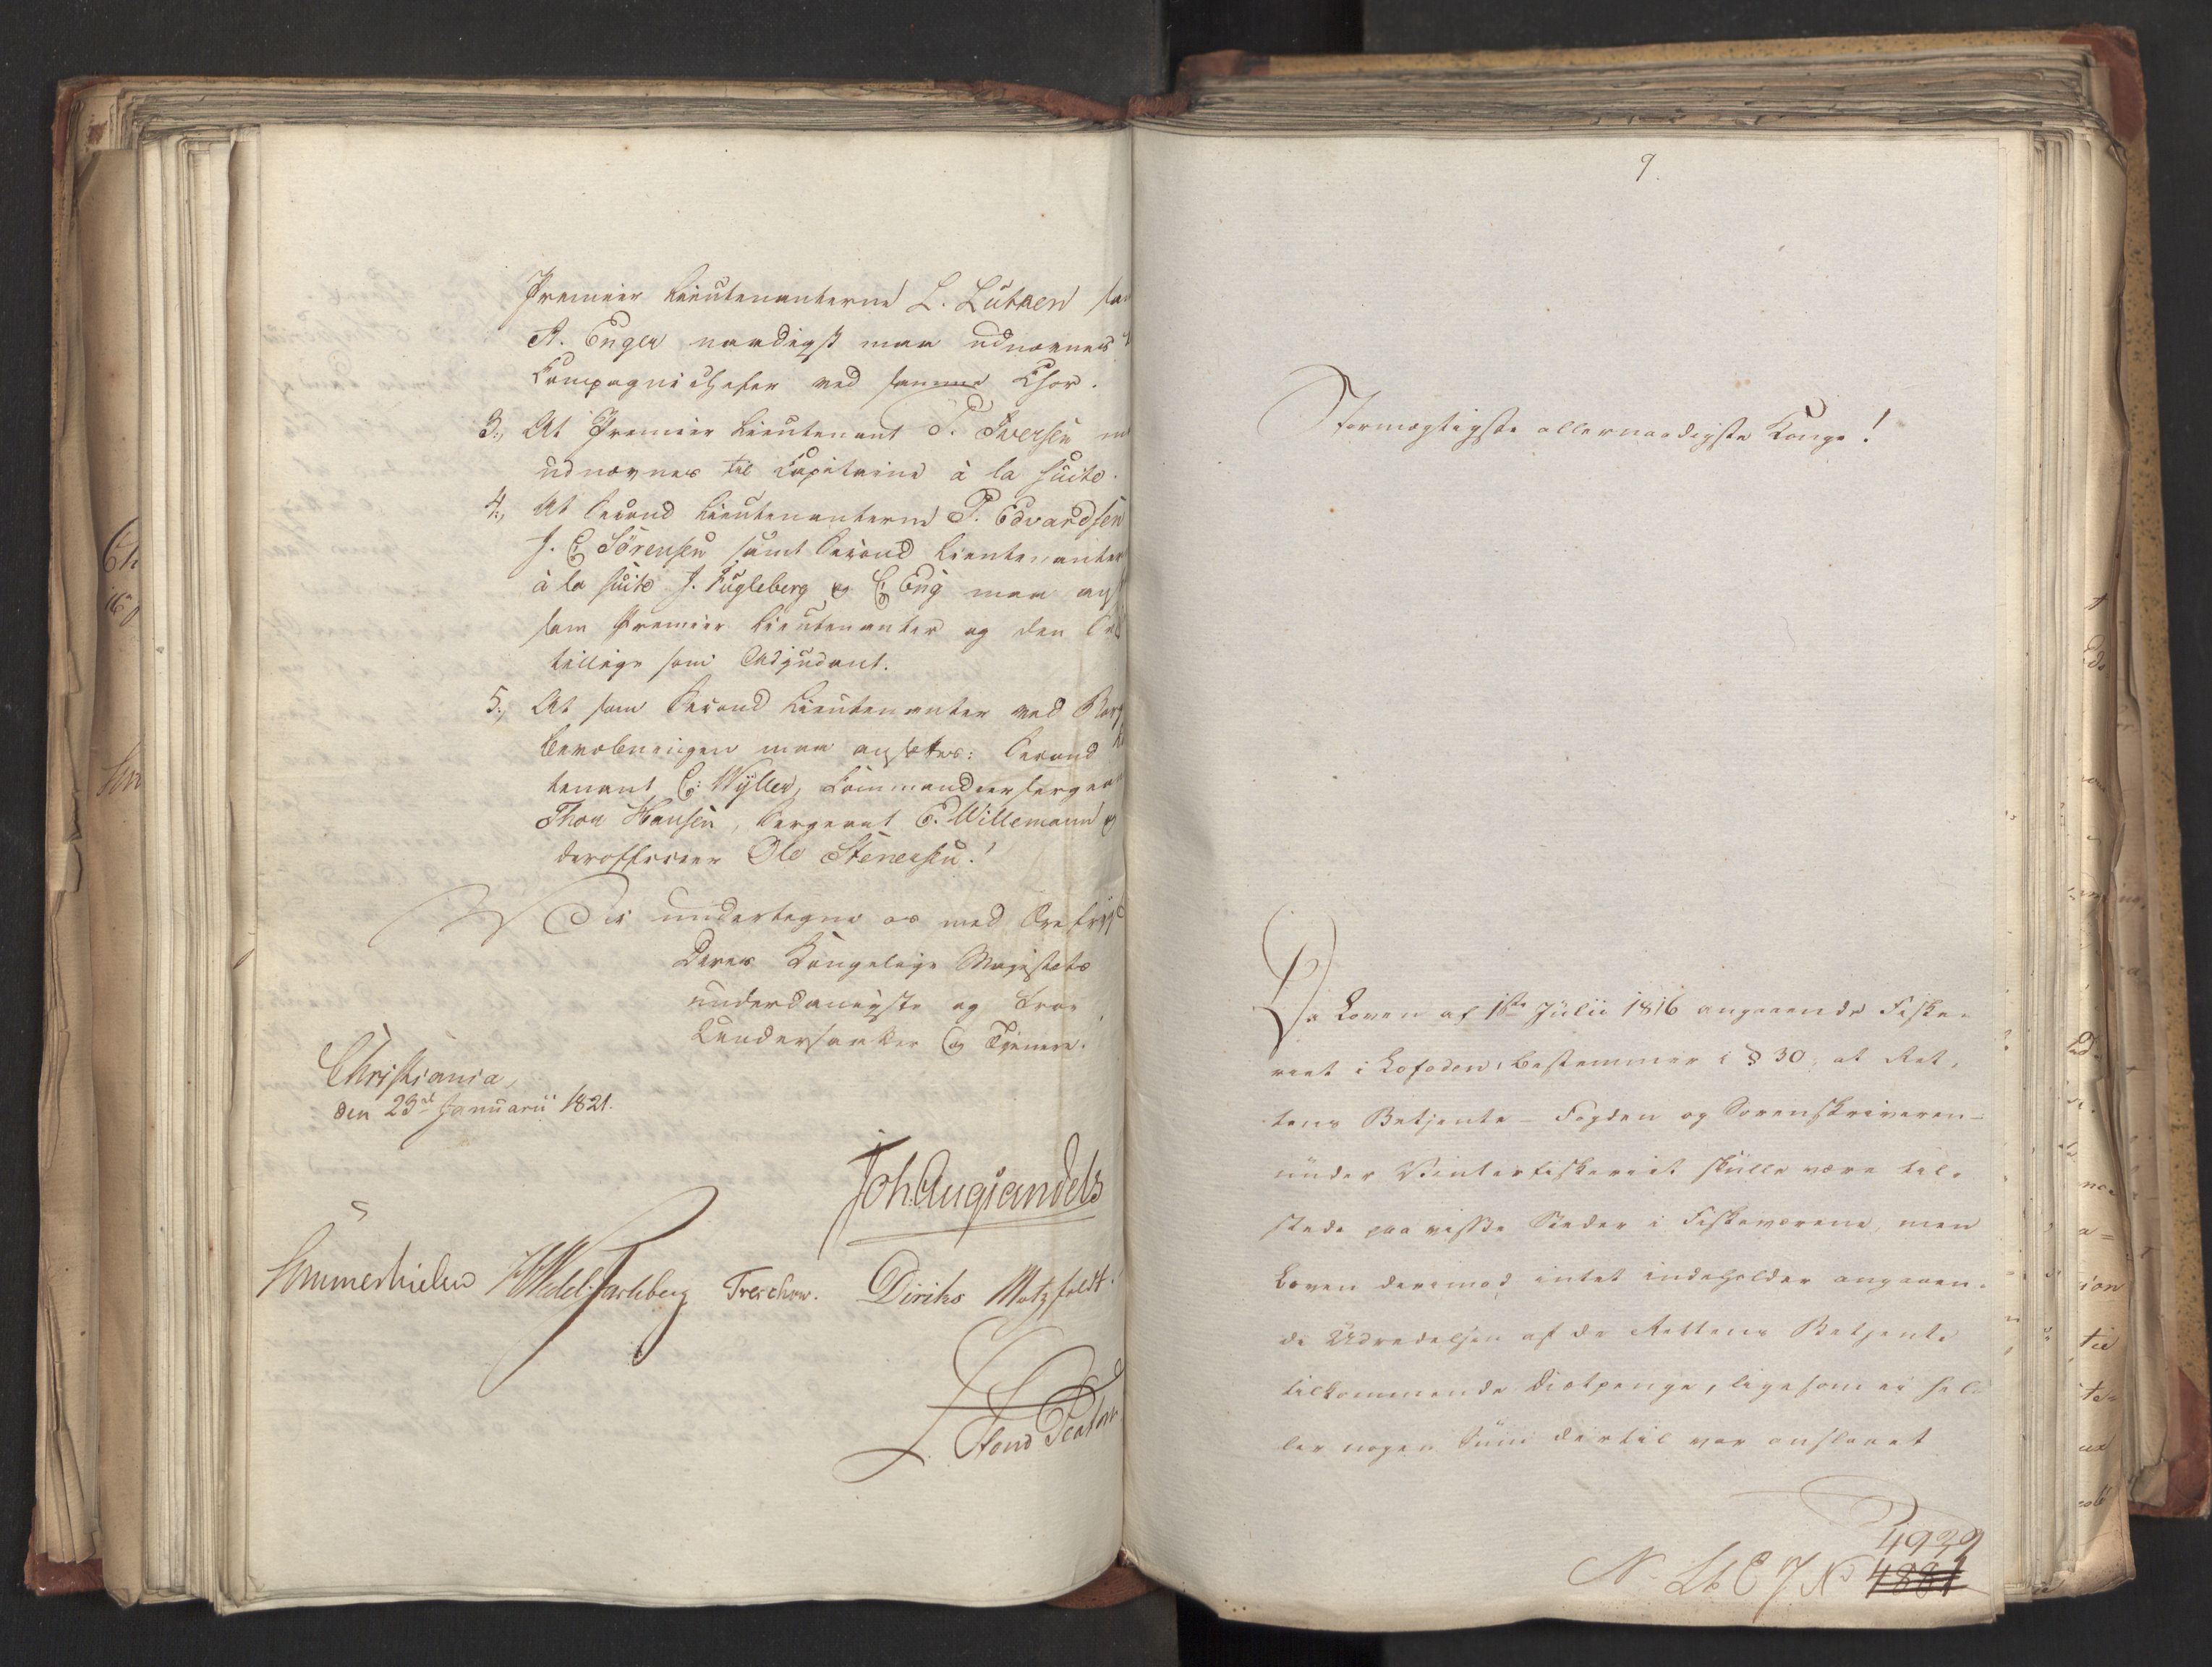 Premier Lieutenanterne L. Lütken sa
A. Enger naadigst maa udnævnes
Compagniechefer ved samme Chor.
3., At Premier Lieutenant P. Iversen m
udnævnes til Capitaine à la suite.
4., At Second Lieutenanterne P. Edvardsen
J. C. Sörensen samt Second Lieutenanter
à la suite J. Fugleberg og C. Eng maa an
som Premier Lieutenanter og den
tillige som Adjudant.
5., At som Second Lieutenanter ved Borg
bevæbningen maa ansættes: Second
tenant C: Wyller, Commandeersergea
Thon Hansen, Sergeant E. Willemann
derofficier Ole Stenersen.
Vi undertegne os med
Deres Kongelige Majestæts
underdanigste og troe
Undersaatter og Tjenere.
Christiania,
den 23de Januarii 1821.
Joh. Aug. Sandels
Sommerhielm HWedel-Jarlsberg Treschow. Diriks Motzfeldt.
9.
Stormægtigste allernaadigste Konge!
Da Loven af 1ste Julii 1816 angaaende Fiske-
riet i Lofoden, bestemmer i § 30, at Ret-
tens Betjente - Fogden og Sorenskriveren -
under Vinterfiskeriet skulle være til-
stede paa visse Steder i Fiskeværene, men
Loven derimod intet indeholder angaaen-
de Udredelsen af de Rettens Betjente
tilkommende Diætpenge, ligesom ei hel-
ler nogen Sum dertil var anslaaet
4939
4881